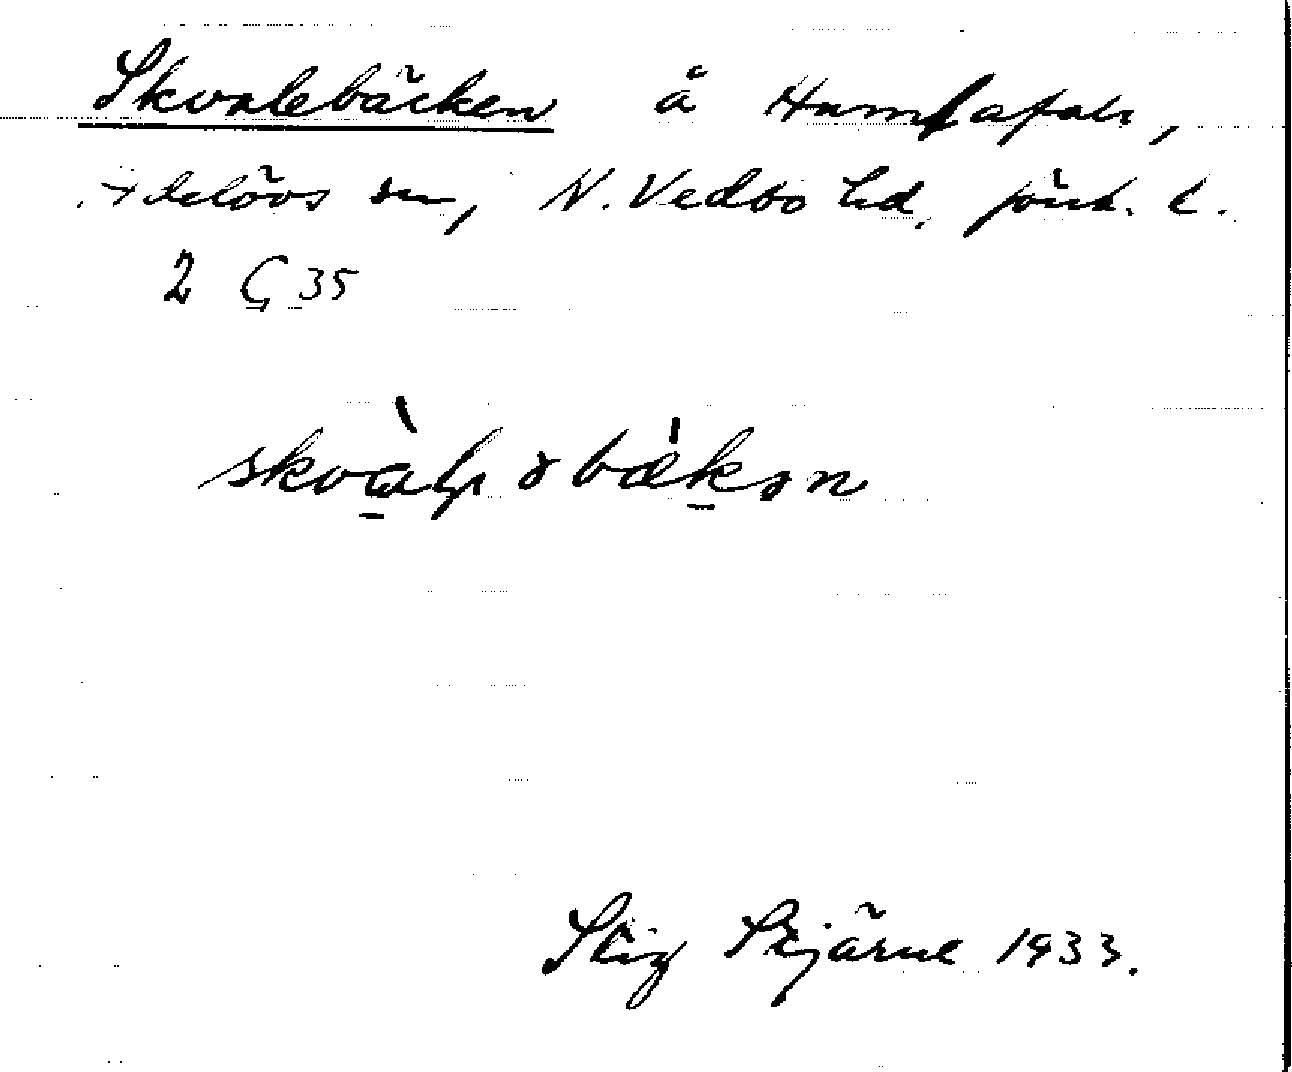 Skvalebäcken å Humlafall,
Adelövs sn, N. Vedbo hd, Jönk. l.
2 G 35
skvàlpəbækən
Stig Stjärne 1933.